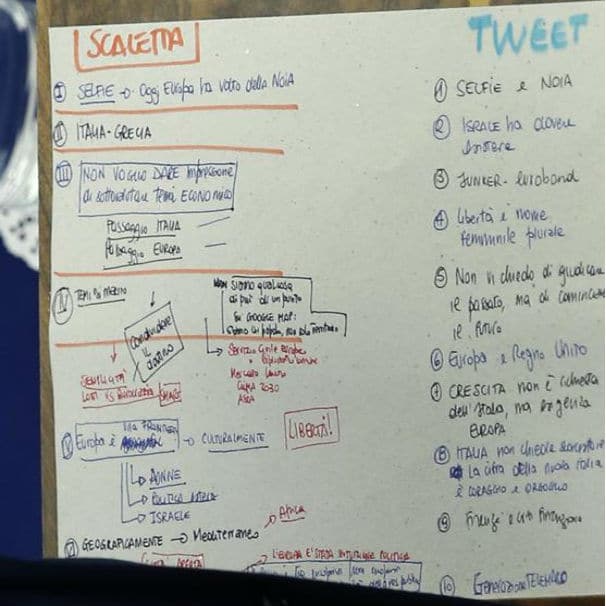 SCALETTA
I SELFIE → Oggi Europa ha volto della NOIA
II ITALIA-GRECIA
III NON VOGLIO DARE impressione
di sottovalutare temi ECONOMICI
Passaggio ITALIA
Passaggio EUROPA
IV TEMI DI MERITO
NON SIAMO qualcosa
di più di un punto
su GOOGLE MAP:
siamo un popolo, non solo territorio
Comunicare
IL
destino
→ Servizio Civile Europeo
Mercato Unico
CLIMA 2030
SEMPLICITÀ
LOTTA VS BUROCRAZIA SMART
V Europa è una FRONTIERA → CULTURALMENTE
LIBERTÀ!
→ DONNE
→ POLITICA ESTERA
→ ISRAELE
VI GEOGRAFICAMENTE → Mediterraneo
→ AFRICA
L'EUROPA È STATA INTUIZIONE POLITICA
TWEET
1 SELFIE e NOIA
2 ISRAELE ha dovere
esistere
3 JUNKER - eurobond
4 libertà è nome
femminile plurale
5 Non vi chiedo di giudicare
il passato, ma di cominciare
il futuro
6 Europa e Regno Unito
7 CRESCITA non è richiesta
dell'Italia, ma esigenza
EUROPA
8 ITALIA non chiede scorciatoie
La cifra della nuova italia
è CORAGGIO e ORGOGLIO
9 Firenze
10 Generazione TELEMACO